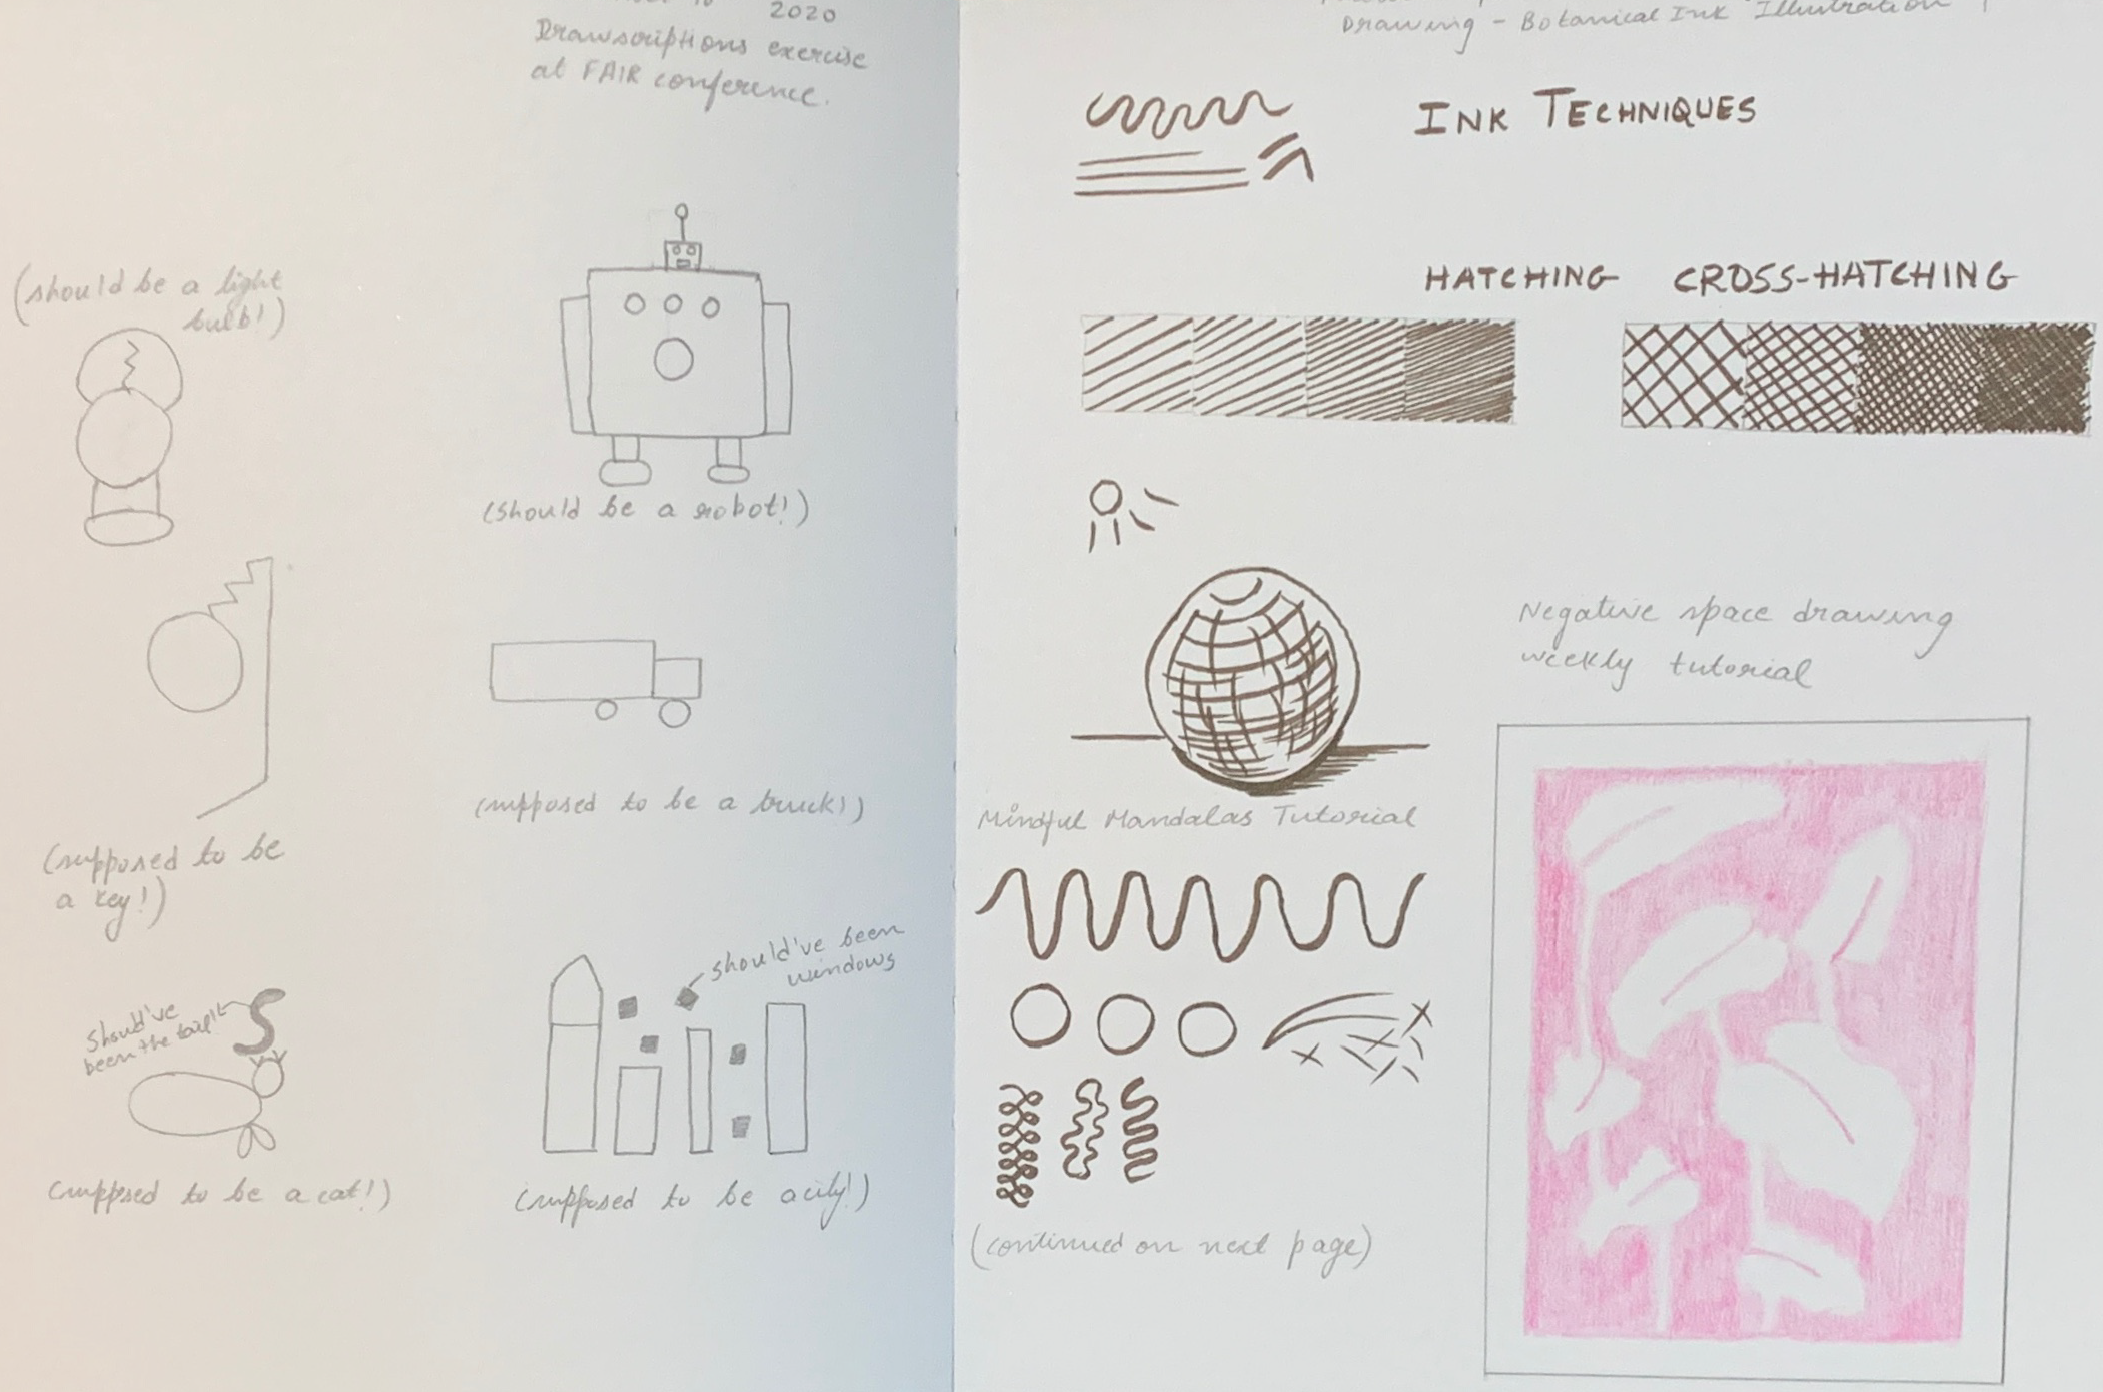 2020
Drawscriptions exercise
at FAIR conference.
(should be a light
bulb!)
(should be a robot!)
(supposed to be
a key!)
(supposed to be a truck!)
should've
been the tail!
(supposed to be a cat!)
should've been
windows
(supposed to be a city!)
Drawing - Botanical Ink Illustration
INK TECHNIQUES
HATCHING CROSS-HATCHING
Negative space drawing
weekly tutorial
Mindful Mandalas Tutorial
(continued on next page)